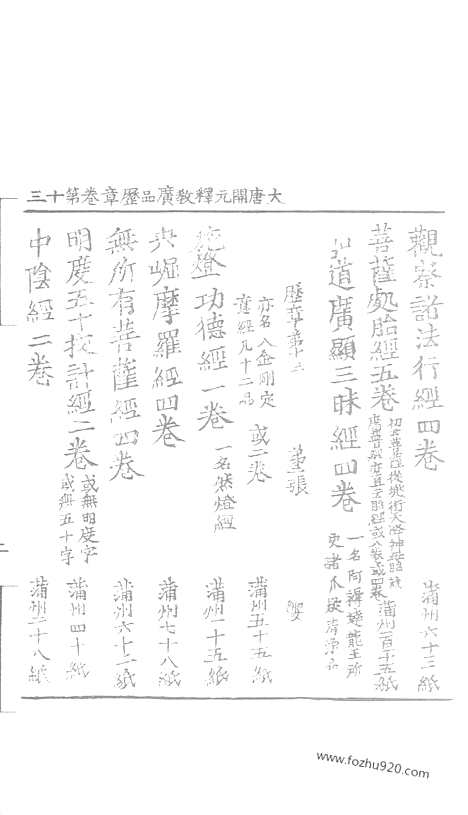 大唐開元釋教廣品歷章卷第十三
觀察諸法行經四卷 蒲州六十三紙
菩薩處胎經五卷 蒲州一百二十五紙
弘道廣顯三昧經四卷 一名阿耨達龍王所
歷章第十三 董張
亦名八金剛定
意經凡十二品 或二卷 蒲州五十五紙
施燈功德經一卷 一名然燈經 蒲州一十五紙
央崛摩羅經四卷 蒲州七十八紙
無所有菩薩經四卷 蒲州六十二紙
明度五十校計經二卷 或無明度字
或無五十字 蒲州四十紙
中陰經二卷 蒲州二十八紙
www.fozhu920.com